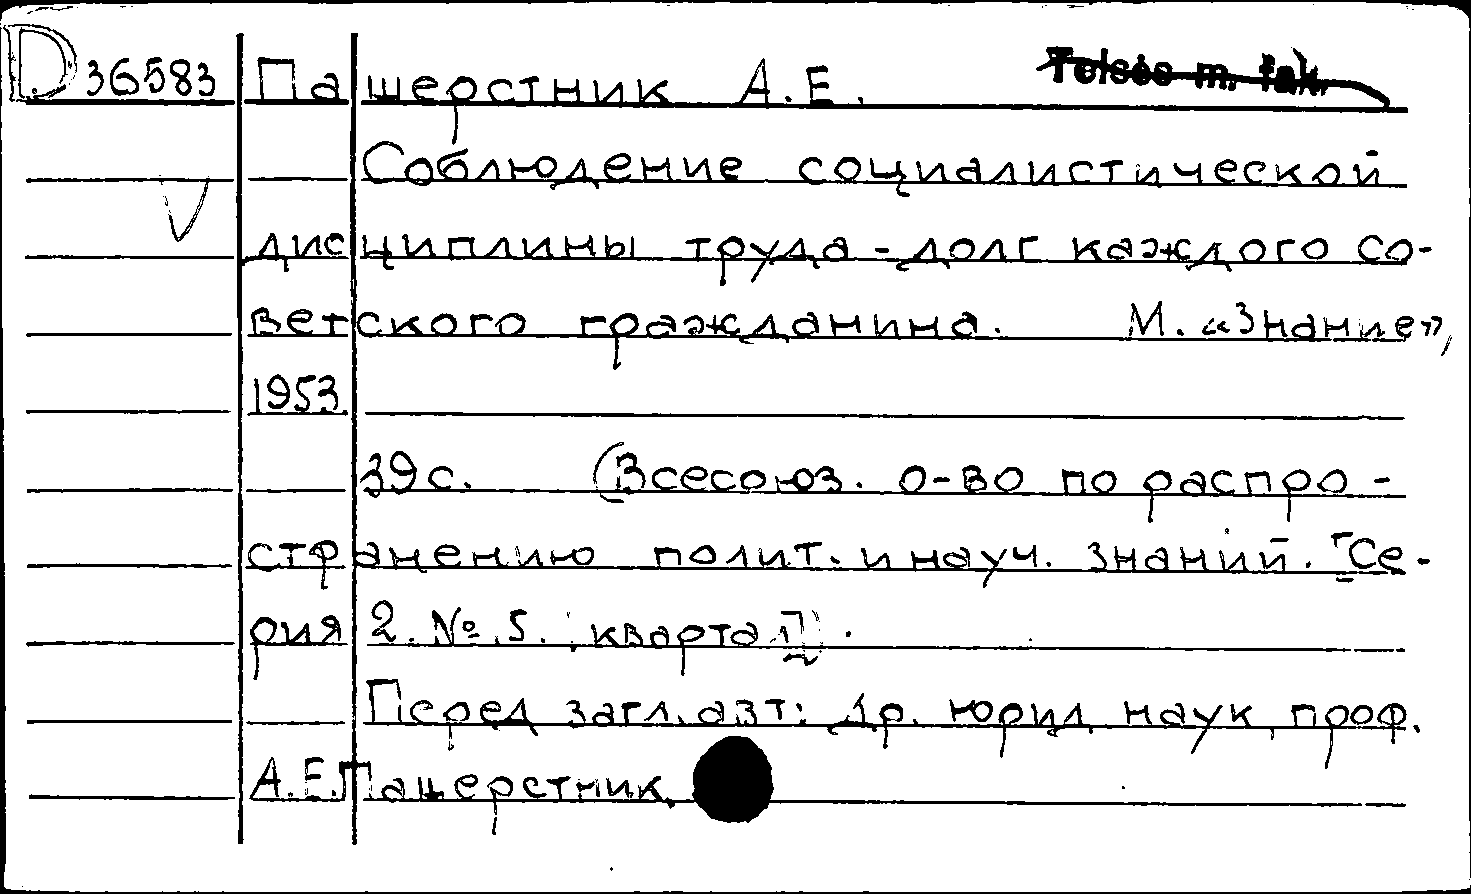 D 36583 Пашерстник А.Е. Telšės m. fak.
Соблюдение социалистической
дисциплины труда - долг каждого со-
ветского гражданина. М. «Знание»,
1953.
39 с. (Всесоюз. о-во по распро-
странению полит. и науч. знаний. [Се-
рия 2. № 5. квартал]).
Перед загл. авт: Др. юрид. наук, проф.
А.Е. Пашерстник.